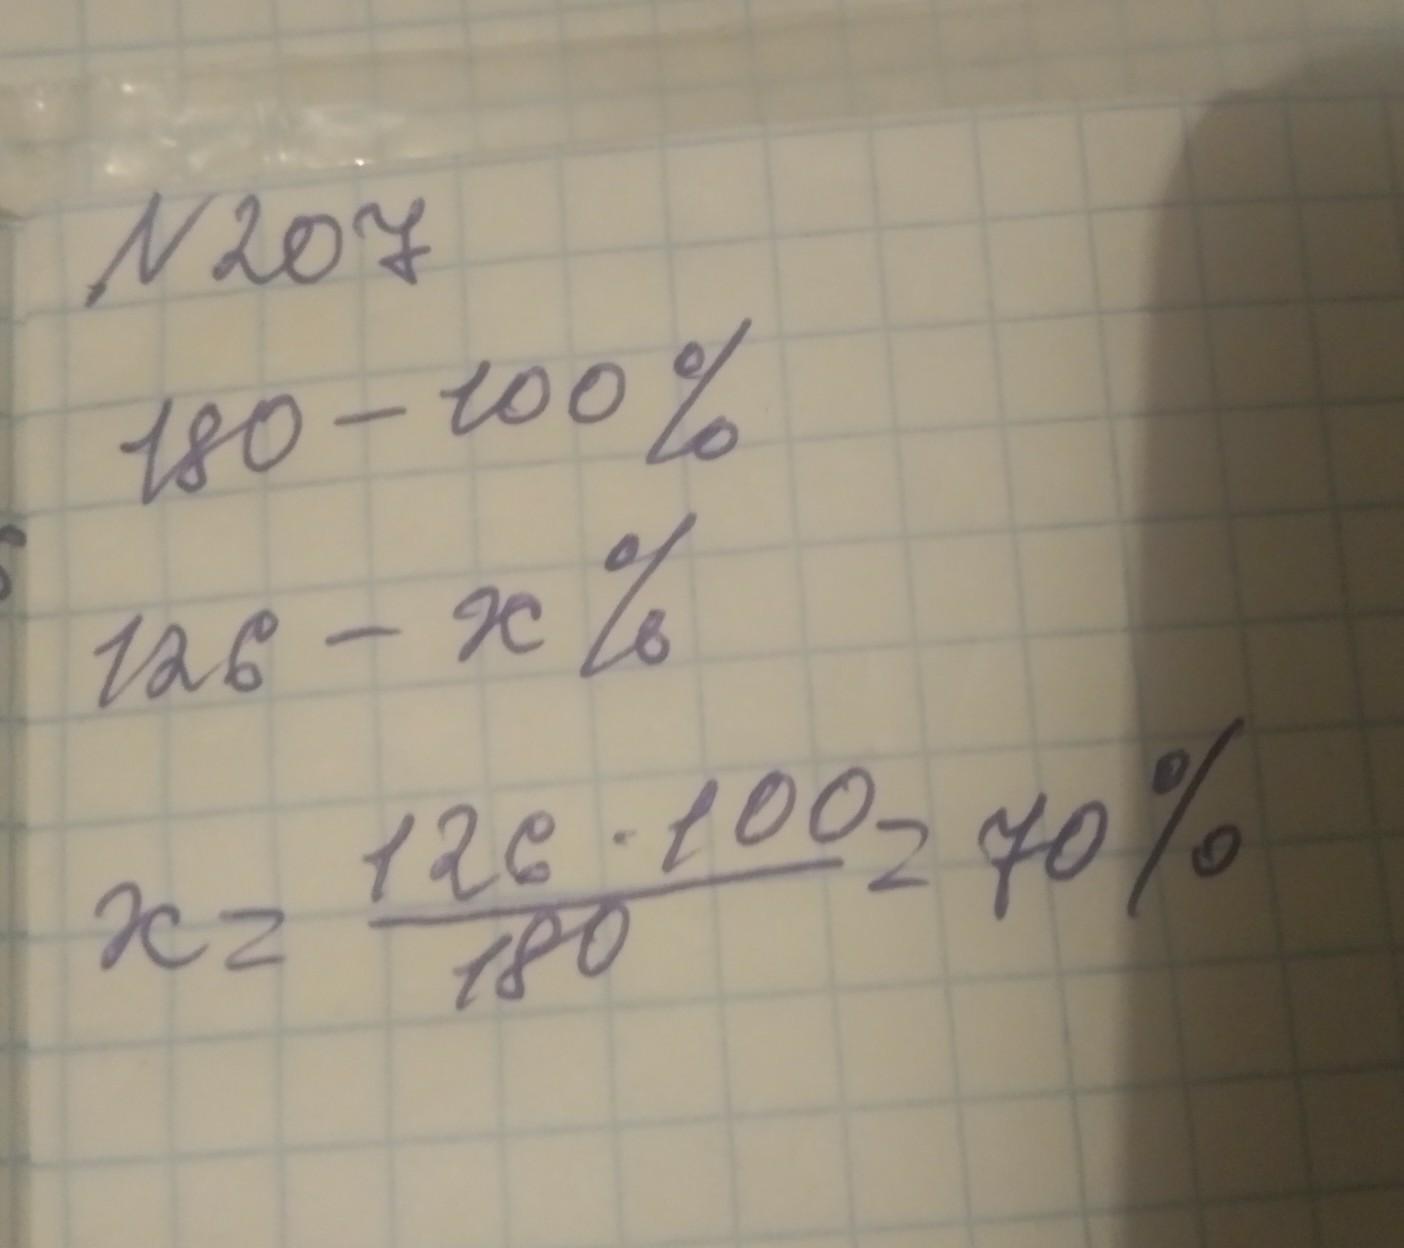 N207
180 – 100%
126 – x%
x = 126 · 100 / 180 = 70%